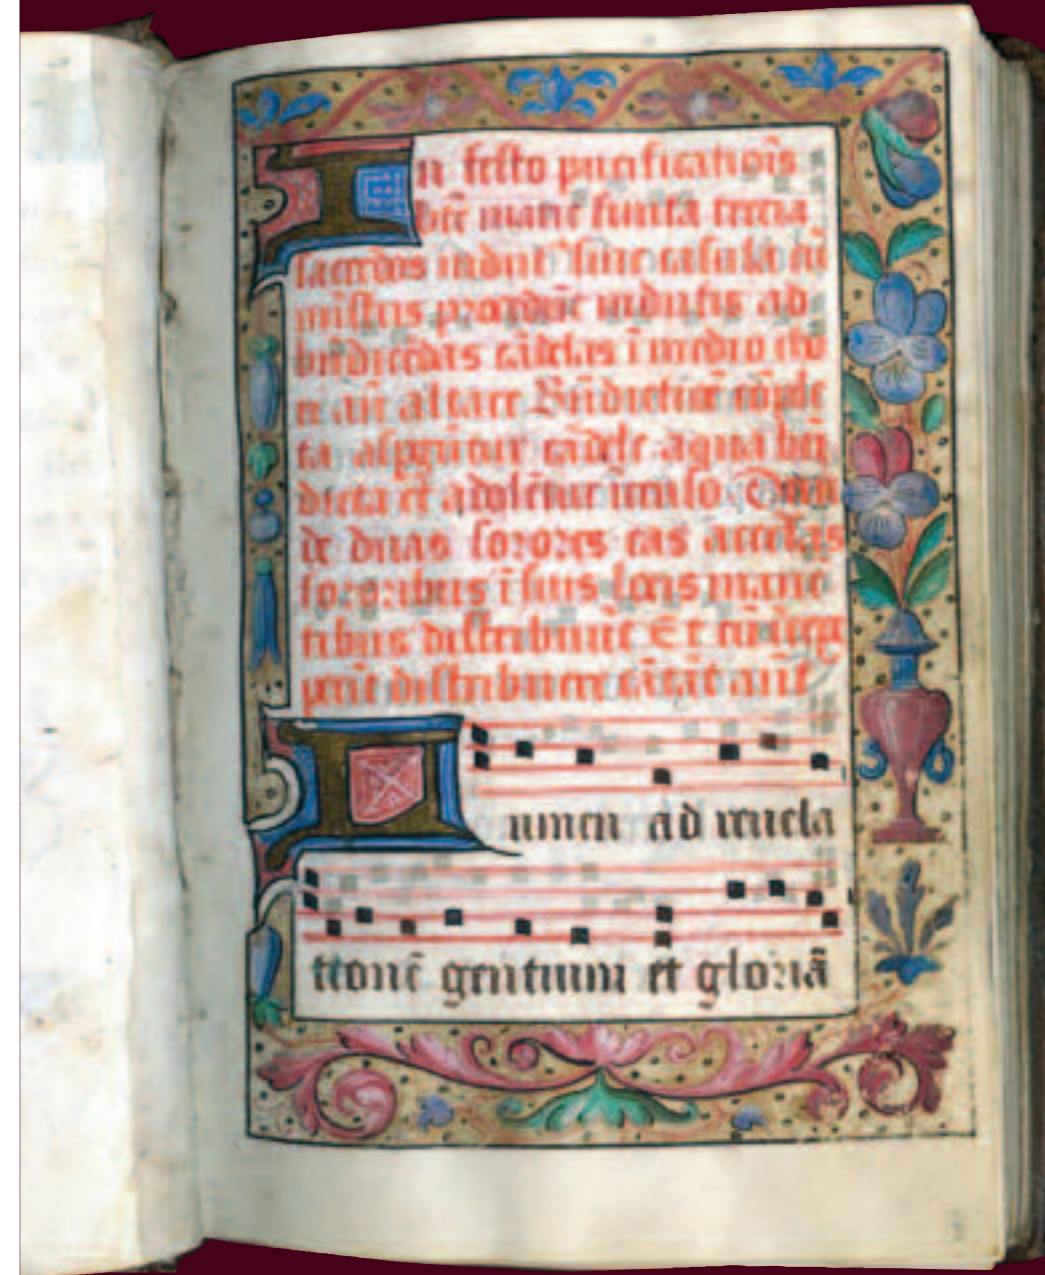 In festo purificatiōis
btē marie finita tercia
sacerdos indut⁹ sine casula cū
mīstris
bn̄dicēdas cādelas ī medio cho
re an̄ altare Bn̄dictiōe cōple
ta cādele aqua bn̄
dicta et adolētur incenso
de duas sorores eas acceptas
sororibus ī suis locis manē
tibus distribuūt Et cū
distribuere cātāt an̄
Lumen ad reuela
tionē gentium et gloriā